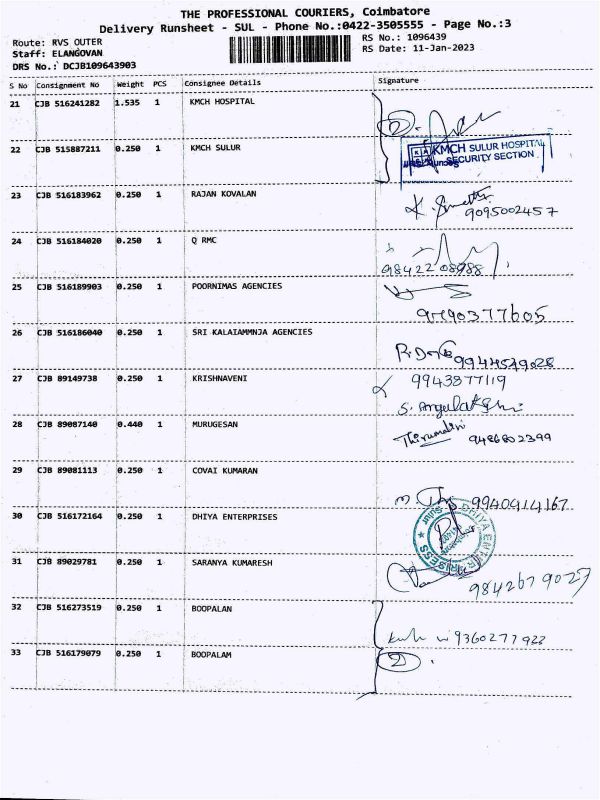 THE PROFESSIONAL COURIERS, Coimbatore
Delivery Runsheet - SUL - Phone No.:0422-3505555 - Page No.:3
Route: RVS OUTER
RS No.: 1096439
Staff: ELANGOVAN
RS Date: 11-Jan-2023
DRS No.: DCJB109643903
S No Consignment No Weight PCS Consignee Details Signature
21 CJB 516241282 1.535 1 KMCH HOSPITAL
2
22 CJB 515887211 0.250 1 KMCH SULUR
KMCH SULUR HOSPITAL
SECURITY SECTION
23 CJB 516183962 0.250 1 RAJAN KOVALAN
9095002457
24 CJB 516184020 0.250 1 Q RMC
98422 08988
25 CJB 516189903 0.250 1 POORNIMAS AGENCIES
26 CJB 516186040 0.250 1 SRI KALAIAMMNJA AGENCIES
27 CJB 89149738 0.250 1 KRISHNAVENI
9943877119
28 CJB 89087140 0.440 1 MURUGESAN
9486802399
29 CJB 89081113 0.250 1 COVAI KUMARAN
9940914167
30 CJB 516172164 0.250 1 DHIYA ENTERPRISES
DHIYA ENTERPRISESS
Sulur
31 CJB 89029781 0.250 1 SARANYA KUMARESH
9842679027
32 CJB 516273519 0.250 1 BOOPALAN
9360277922
33 CJB 516179079 0.250 1 BOOPALAM
2